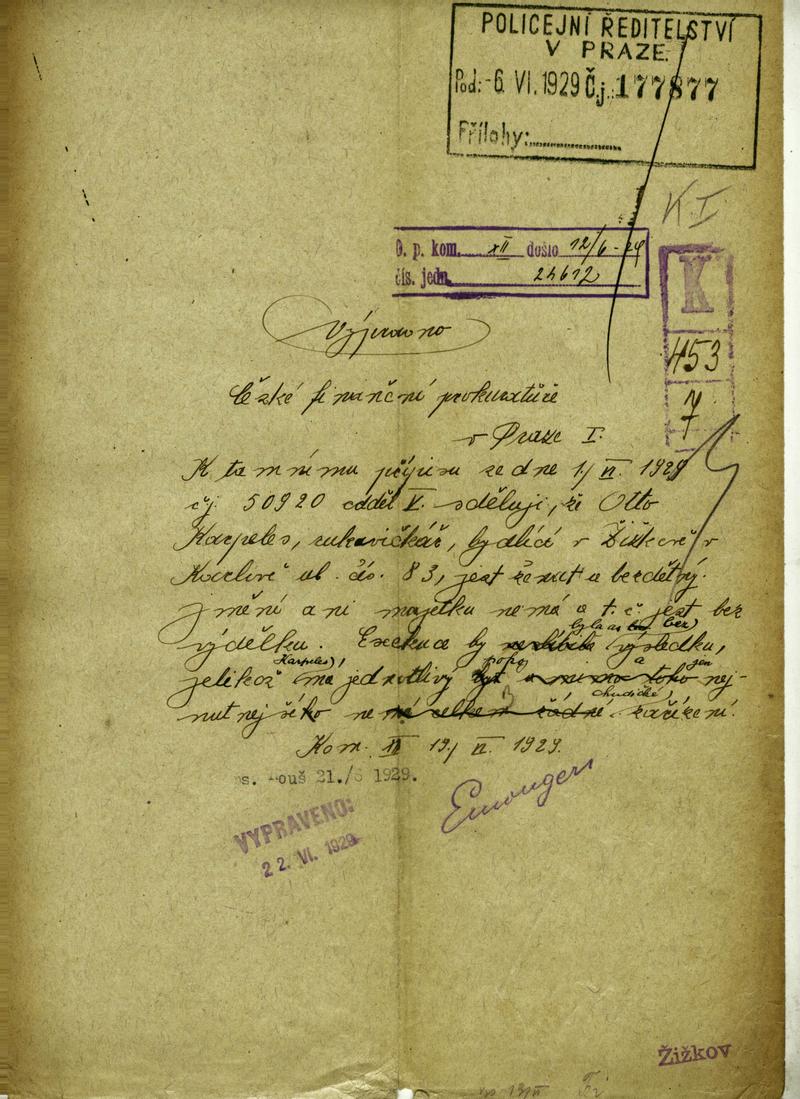 POLICEJNÍ ŘEDITELSTVÍ
V PRAZE
Pod: -6. VI. 1929 Č.j.: 177877
Přílohy:
K I
O. p. kom. XII došlo 12/6-29
čís. jedn. 24612
K
453
7
Výjimo no
České finanční prokuratuře
v Praze I.
K tamnímu přípisu ze dne 1/VI. 1929
čj. 50920 odděl V. sděluji, že Otto
Karpeles, rukavičkář, bydlící v Žižkově v
Karlově ul. čís. 83, jest ženat a bezdětný.
Jmění ani majetku nemá a t. č. jest bez
byla as bez
výdělku. Exekuce by výsledku,
Karpeles, popoj a jen
jelikož má jednotlivý nej-
chudické,
nutnějšího ne má celkem žádné zařízení.
Kom. 19/VI. 1929.
ouš 21./6 1929.
VYPRAVENO:
22. VI. 1929
Žižkov